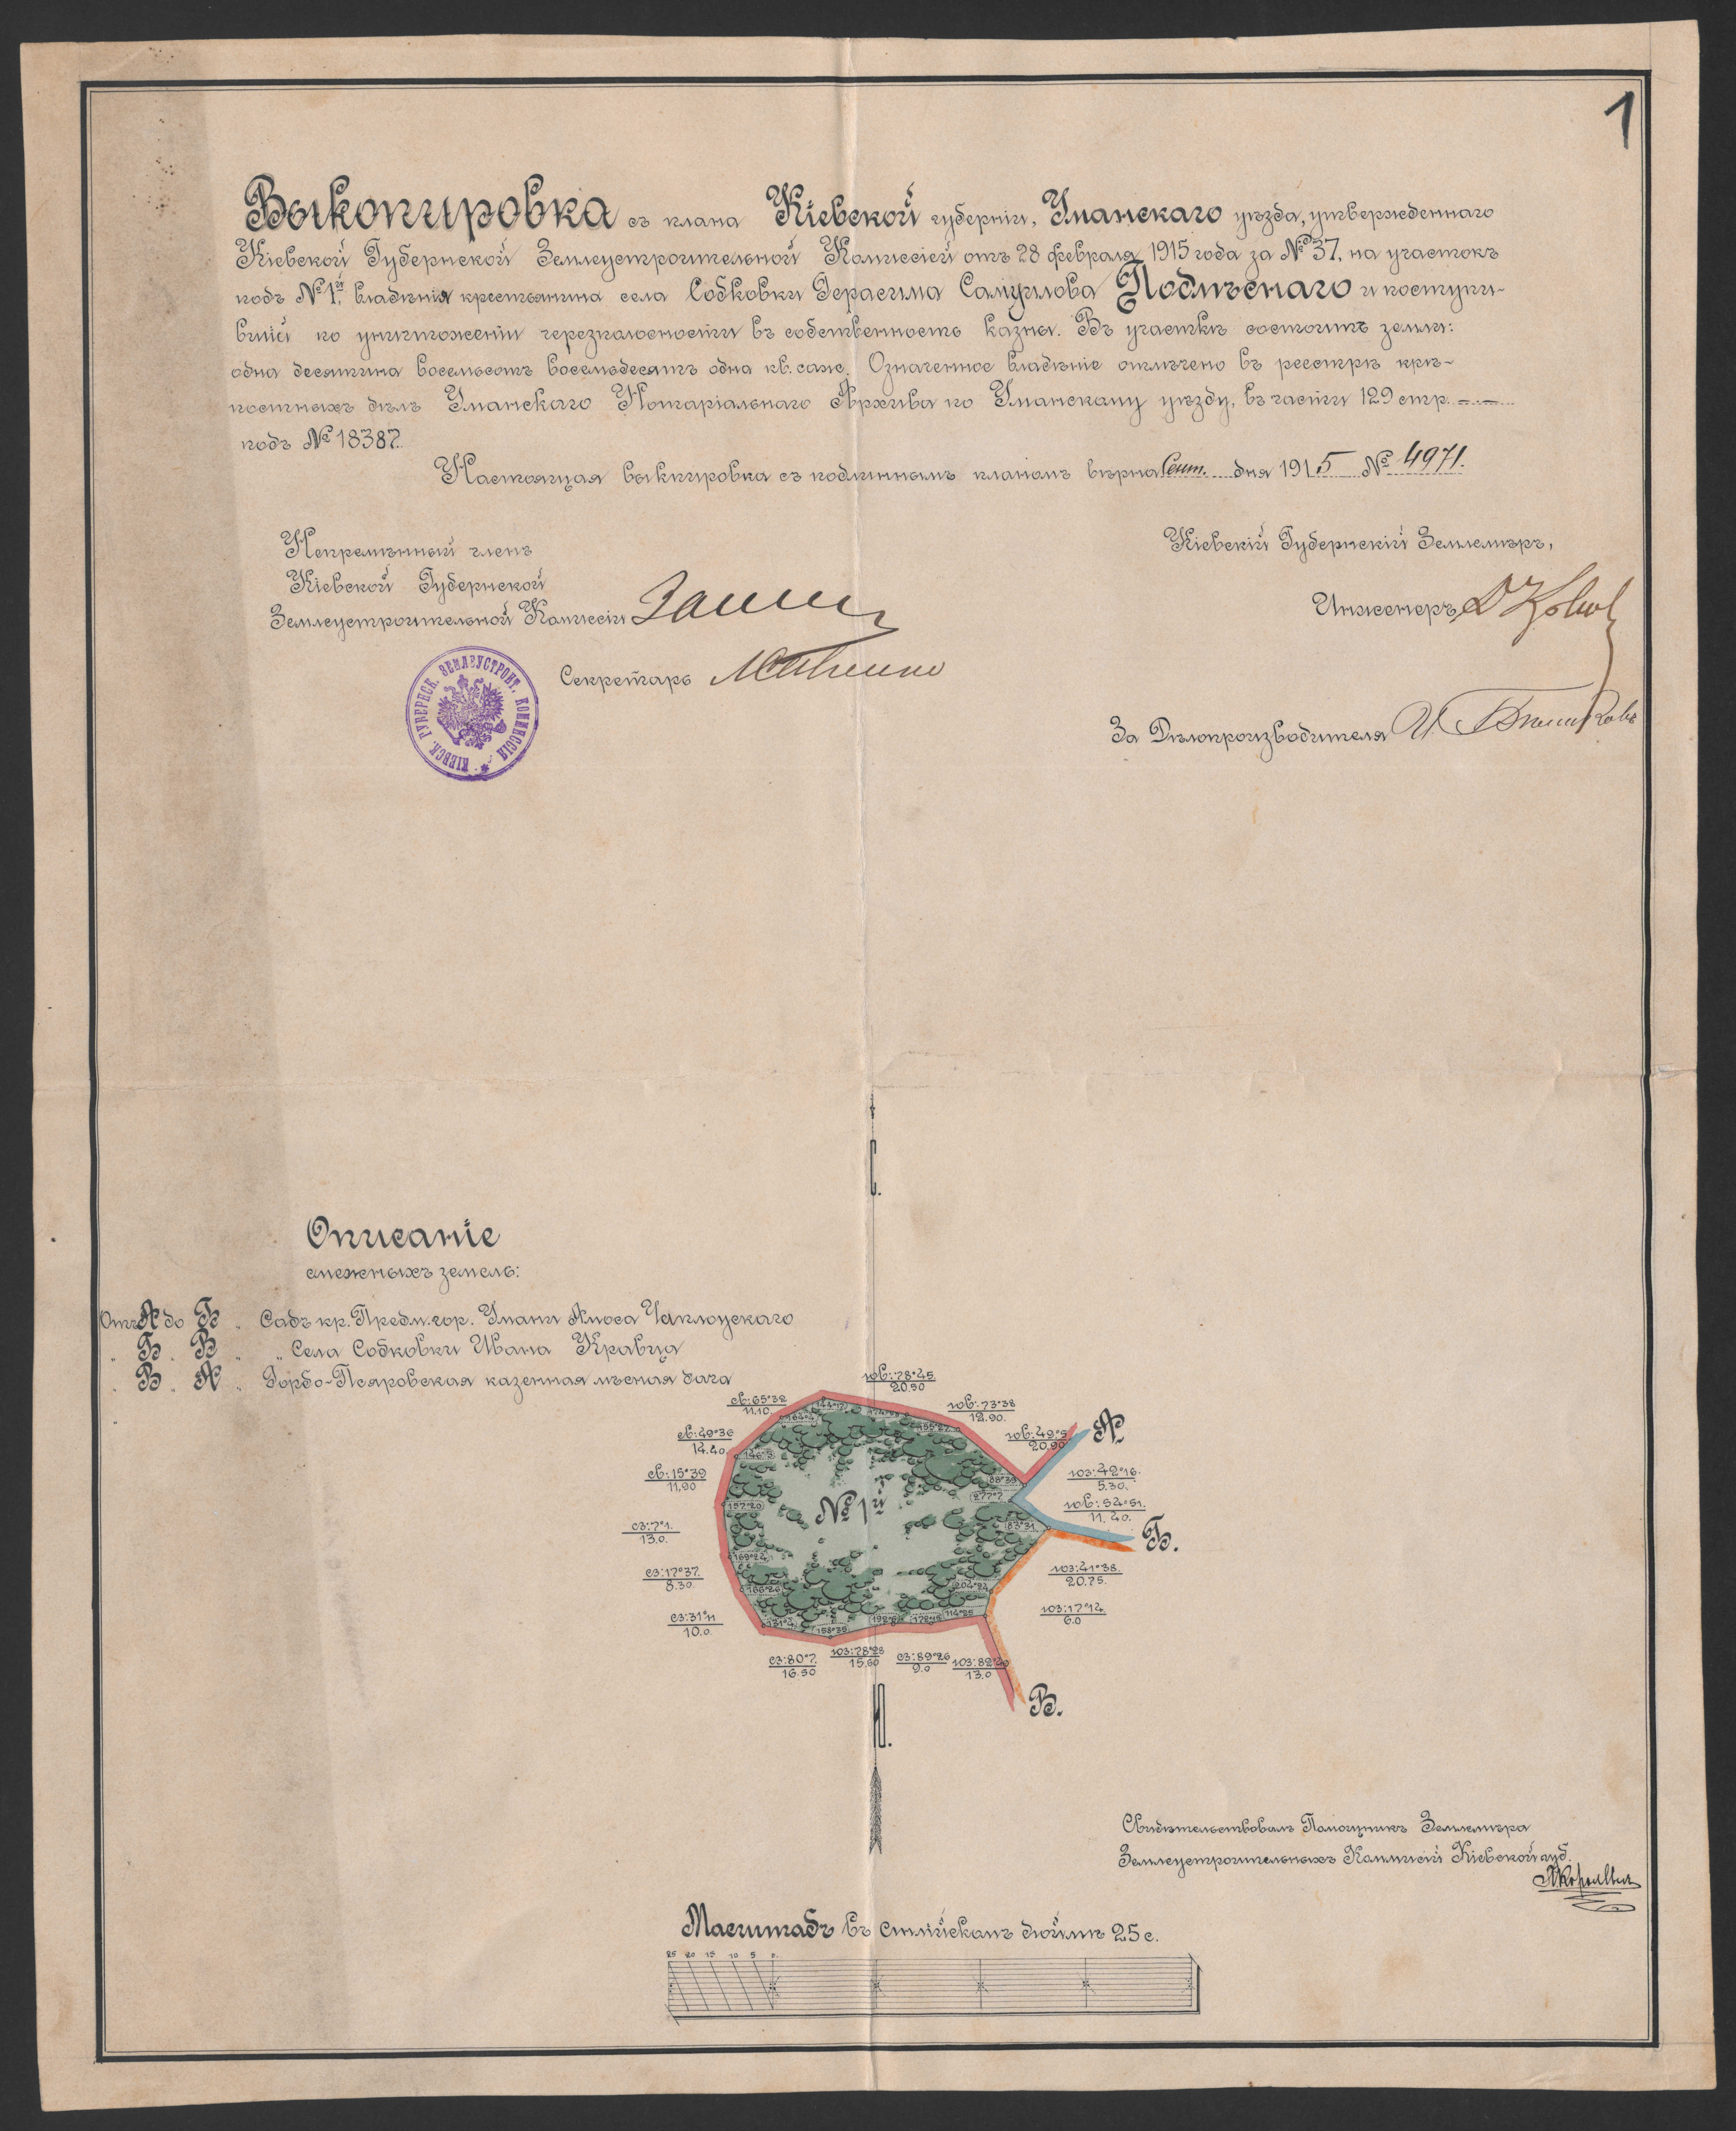 1
Выкопировка съ плана Кіевской губерніи, Уманскаго уѣзда, утвержденнаго
Кіевской Губернской Землеустроительной Комиссіей отъ 28 февраля 1915 года за № 37, на участокъ
подъ № 1й, владѣнія крестьянина села Собковки Герасима Самуилова Подлѣснаго и поступи-
вшій по уничтоженіи черезполосности въ собственность казны. Въ участкѣ состоитъ земли:
одна десятина восемьсотъ восемьдесятъ одна кв. саж. Означенное владѣніе отмѣчено въ реестрѣ крѣ-
постныхъ дѣлъ Уманскаго Нотаріальнаго Архива по Уманскому уѣзду, въ части 129 стр.
подъ № 18387.
Настоящая выкпировка съ подлиннымъ планомъ вѣрна Сент. дня 1915 № 4971.
Непремѣнный членъ
Кіевской Губернской
Землеустроительной Комиссіи
Секретарь
КІЕВСК. ГУБЕРНСК. ЗЕМЛЕУСТРОИТ. КОМИССІЯ
Кіевскій Губернскій Землемѣръ,
Инженеръ
За Дѣлопроизводителя
С.
Описаніе
смежныхъ земель:
Отъ А до Б Садъ кр. Предм. гор. Умани Амоса Чаплоускаго
" Б " В " " Села Собковки Ивана Кравца
" В " А " Горбо-Псяровская казенная лѣсная дача
юв: 78°45
20.50
св: 65°32
11.10
юв: 73°38
12.90.
св: 49°36
14.40
юв: 49°5
20.90
А.
св: 15°39
11.90
юз: 42°16.
5.30.
юв: 54°51.
11.40.
№ 1й
сз: 7°1.
13.0.
Б.
сз: 17°37.
8.30.
юз: 41°38.
20.75.
сз: 31°11
10.0.
юз: 17°12
6.0
сз: 80°7.
16.50
юз: 78°28
15.60
сз: 89°26
9.0
юз: 82°40
13.0
В.
Ю.
Свидѣтельствовалъ Помощникъ Землемѣра
Землеустроительныхъ Комиссій Кіевской губ.
Масштабъ въ англійскомъ дюймѣ 25 с.
25 20 15 10 5 0